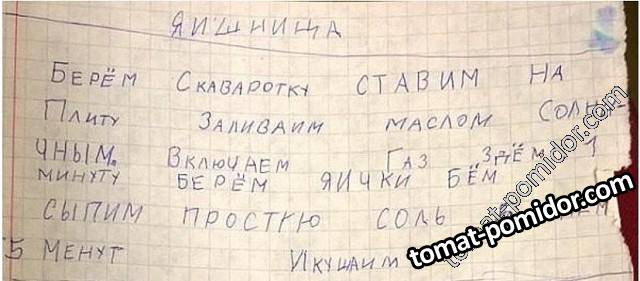 ЯИШНИЦА
БЕРЁМ СКАВАРОТКУ СТАВИМ НА
ПЛИТУ ЗАЛИВАИМ МАСЛОМ СОЛНЕ-
ЧНЫМ. ВКЛЮЧАЕМ ГАЗ ЗДЁМ 1
МИНУТУ БЕРЁМ ЯИЧКИ БЁМ
СЫПИМ ПРОСТУЮ СОЛЬ
5 МЕНУТ ИКУШАИМ
tomat-pomidor.com
tomat-pomidor.com